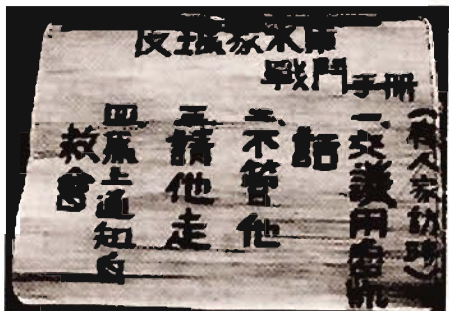 反瑪家水庫
戰鬥手冊
(有人家訪時)
一、交談用魯凱
話
二、不管他
三請他走
四馬上通知自
救會